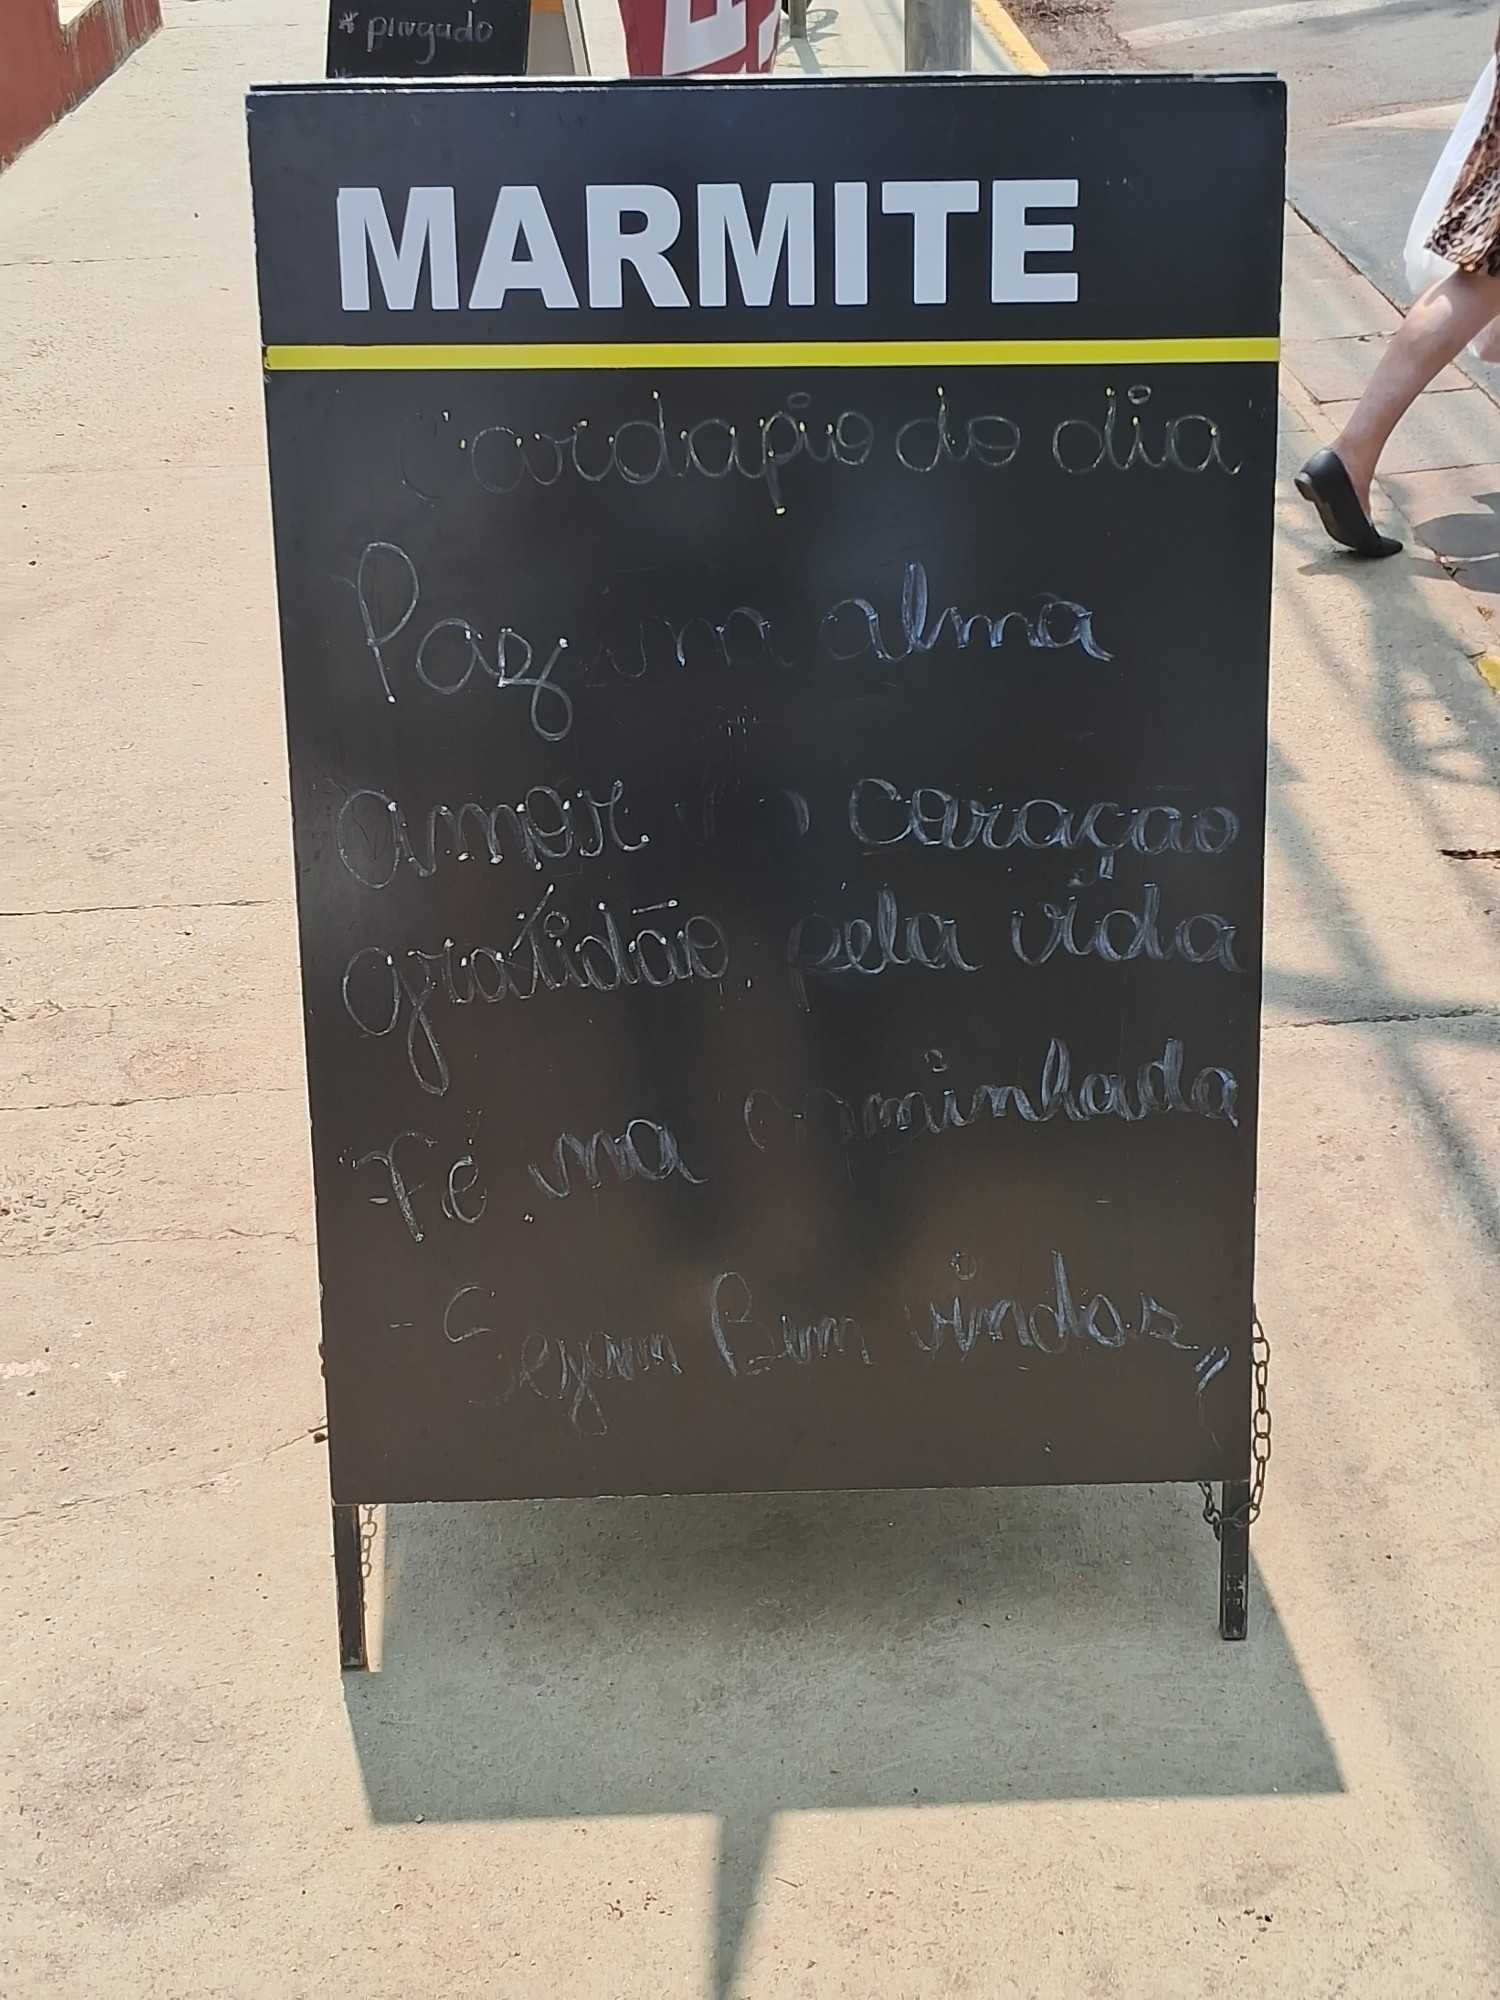 * pingado
MARMITE
"Cardapio do dia"
Paz na alma
amor coração
gratidão pela vida
Fé na caminhada
Sejam Bem vindos,,